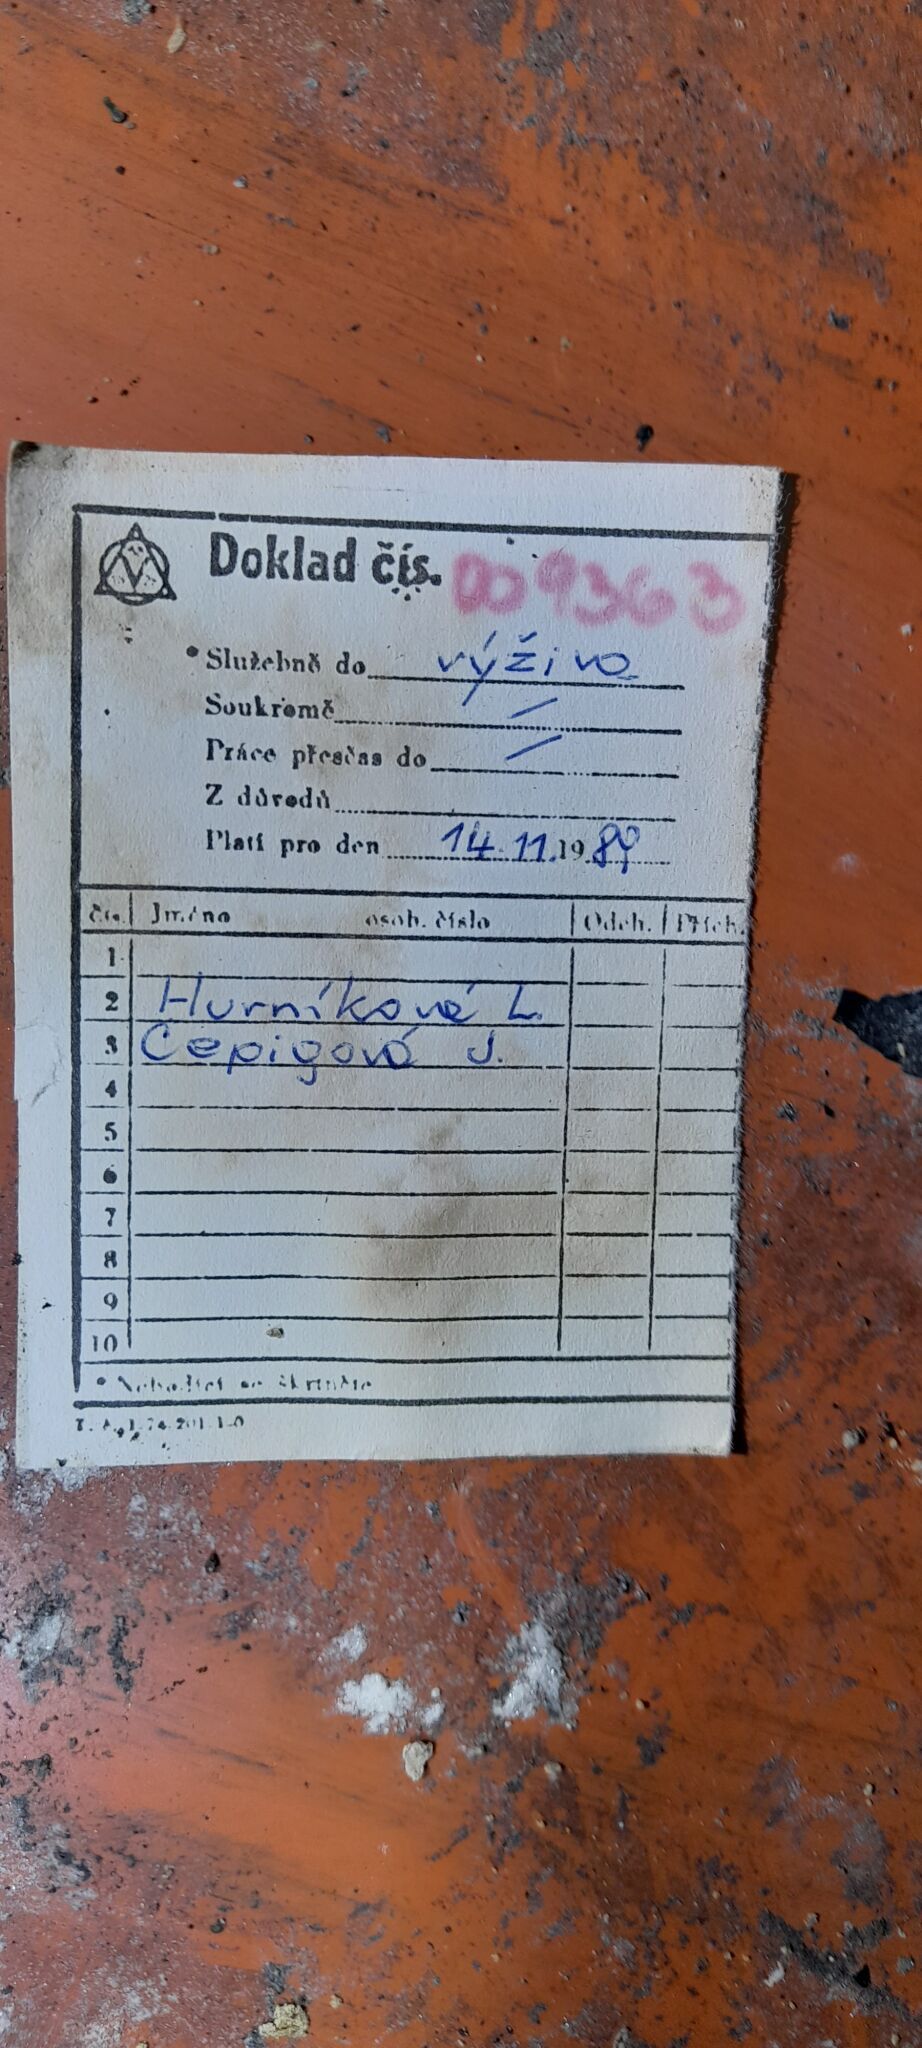 Doklad čís. 009363
*Služebně do výživa
Soukromě /
Práce přesčas do /
Z důvodů
Platí pro den 14. 11. 1989
čís. Jméno osob. číslo Odch. Přích.
1
2 Hurníková L.
3 Cepigová J.
4
5
6
7
8
9
10
* Nehodící se škrtněte